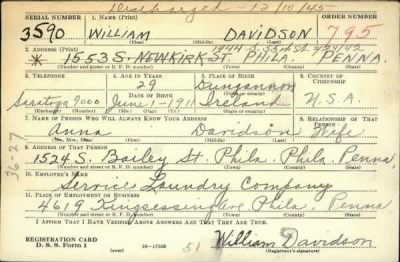 Discharged - 12/11/45
SERIAL NUMBER 1. NAME (Print) ORDER NUMBER
3590 WILLIAM DAVIDSON 795
(First) (Middle) (Last)
2. ADDRESS (Print)
* 1553 S. NEWKIRK ST PHILA. PENNA.
(Number and street or R. F. D. number) (Town) (County) (State)
3. TELEPHONE 4. AGE IN YEARS 5. PLACE OF BIRTH 6. COUNTRY OF CITIZENSHIP
29 Dungannon
DATE OF BIRTH
Saratoga 9000 June-1-1911 Ireland U.S.A.
(Exchange) (Number) (Mo.) (Day) (Yr.) (State or country)
7. NAME OF PERSON WHO WILL ALWAYS KNOW YOUR ADDRESS 8. RELATIONSHIP OF THAT PERSON
Anna Davidson Wife
(Mr., Mrs., Miss) (First) (Middle) (Last)
9. ADDRESS OF THAT PERSON
1524 S. Bailey St. Phila. Phila. Penna
(Number and street or R. F. D. number) (Town) (County) (State)
10. EMPLOYER'S NAME
Service Laundry Company
11. PLACE OF EMPLOYMENT OR BUSINESS
4619 Kingsessing Ave Phila. Penna
(Number and street or R. F. D. number) (Town) (County) (State)
I AFFIRM THAT I HAVE VERIFIED ABOVE ANSWERS AND THAT THEY ARE TRUE.
REGISTRATION CARD
D. S. S. Form 1 51 William Davidson
(Registrant's signature)
36-27